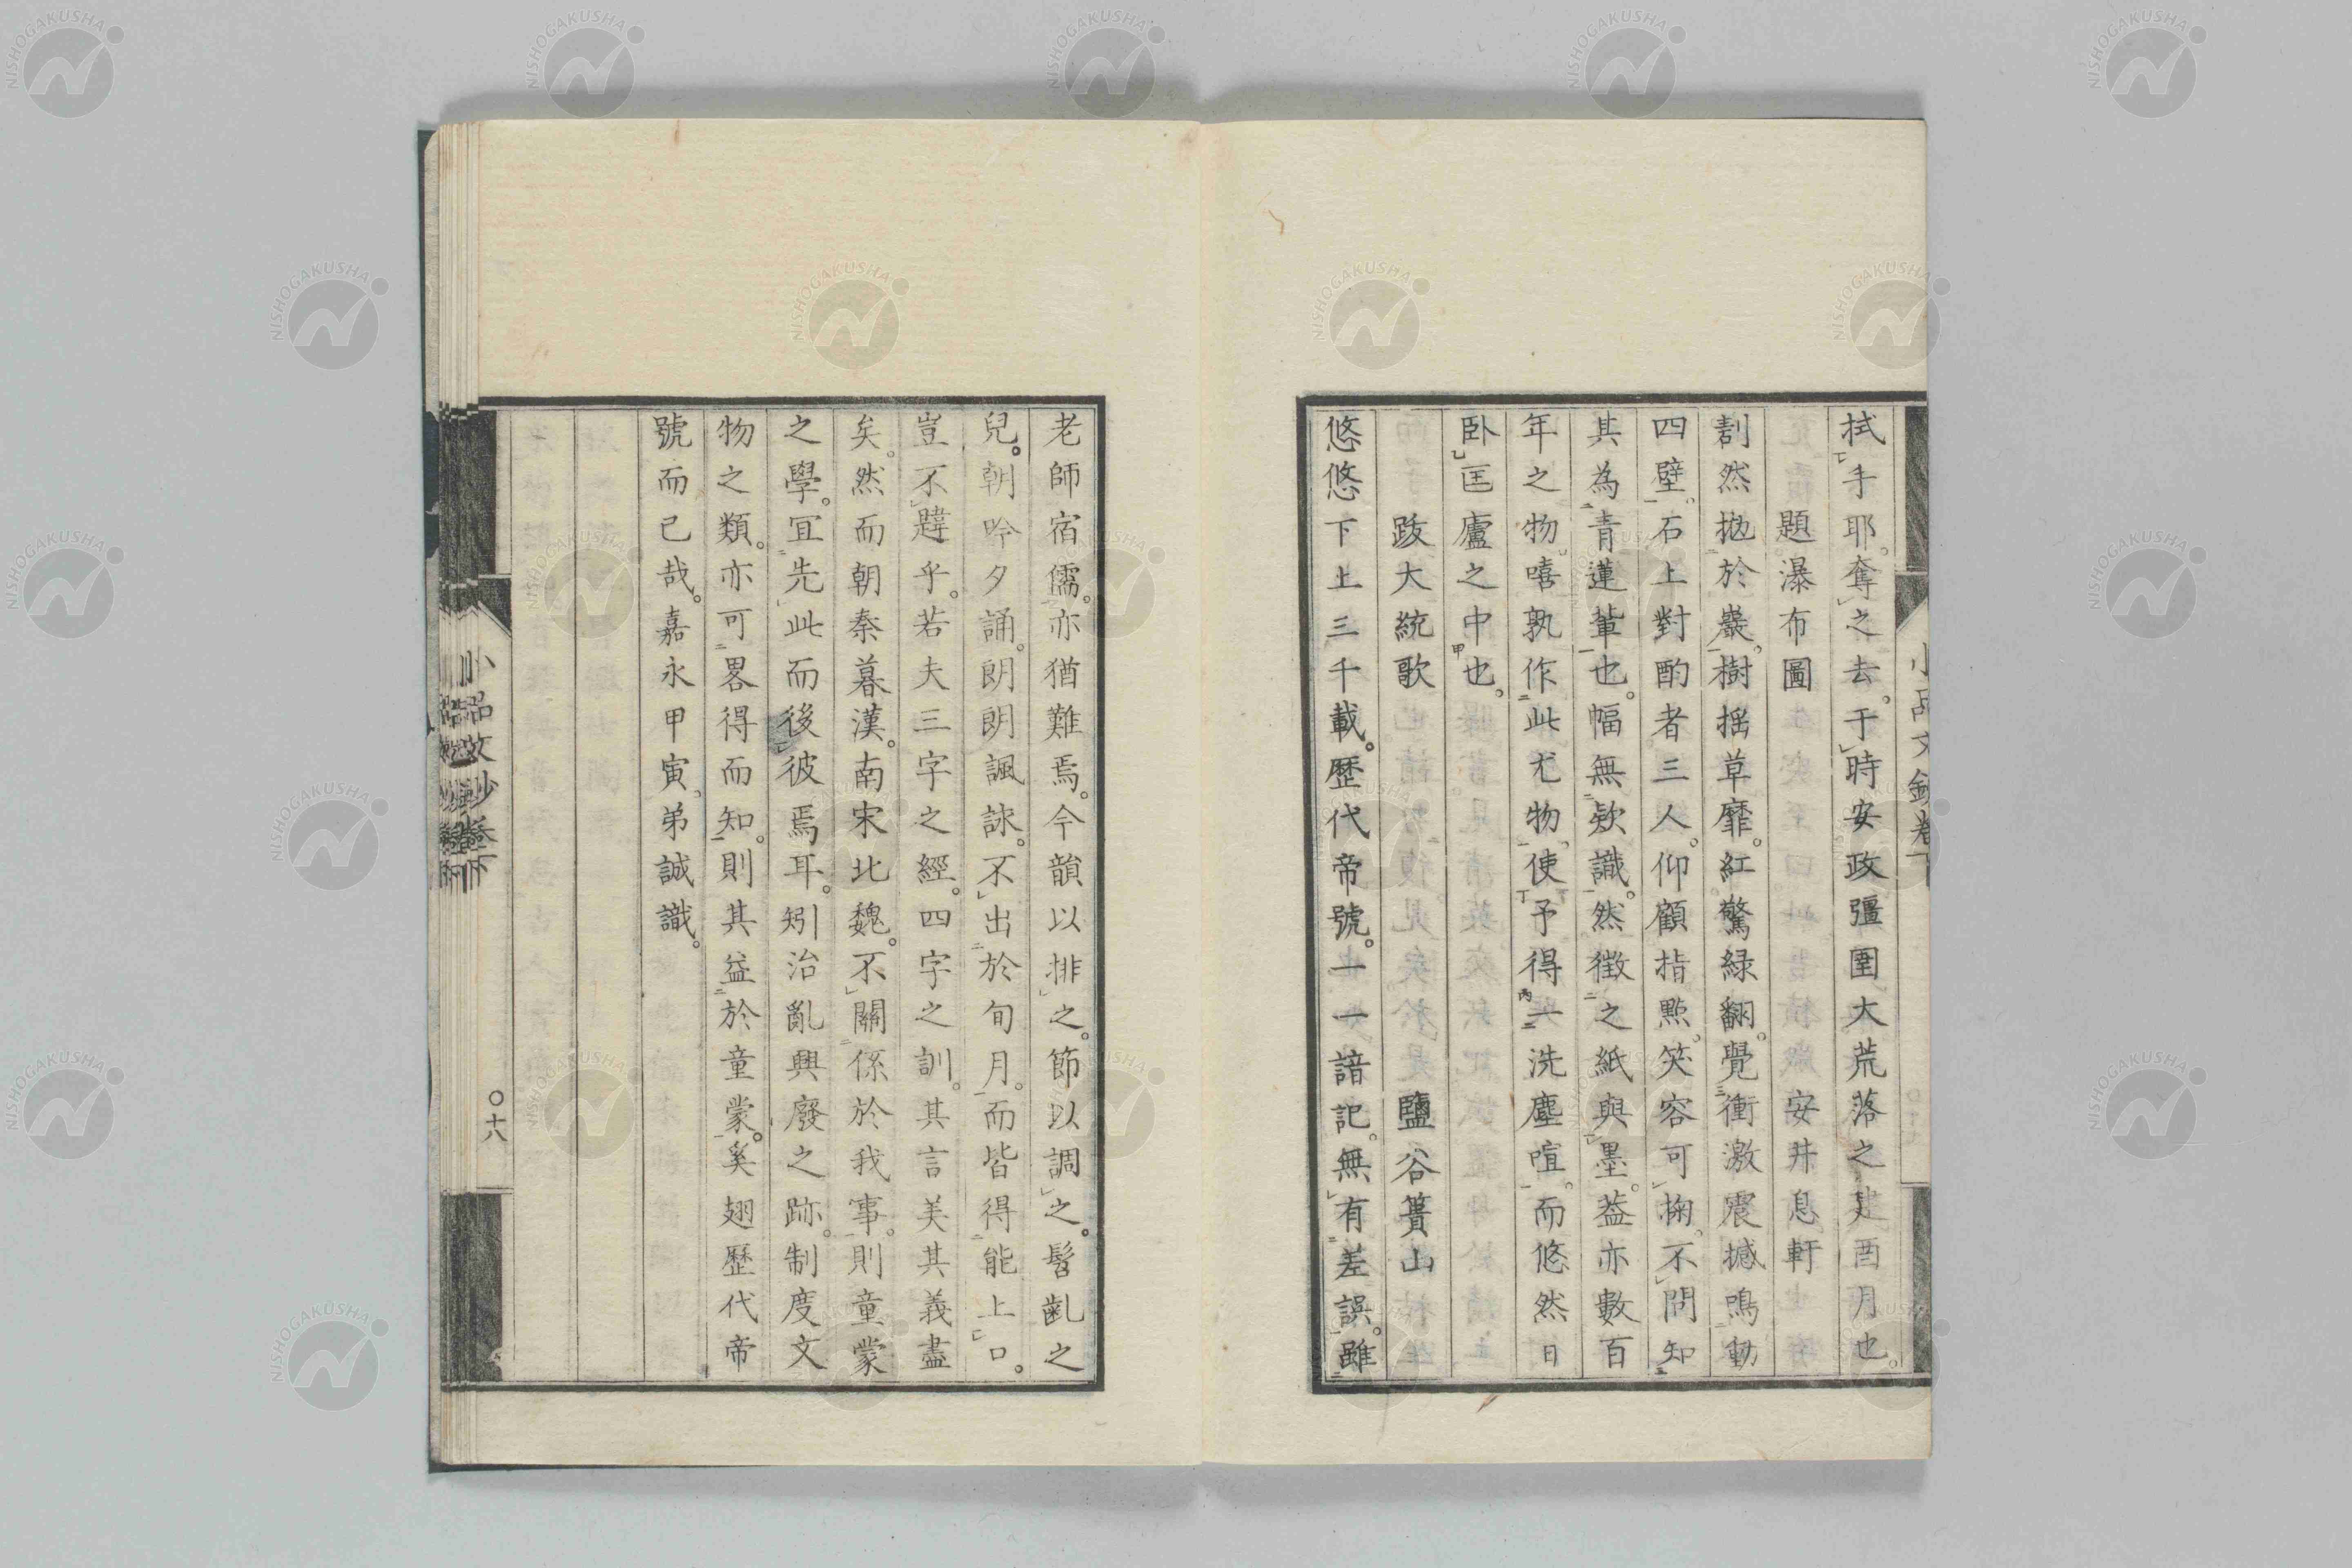 拭手耶。奪之去。于時安政彊圉大荒落之建酉月也。
題瀑布圖　安井息軒
割然拋於巖。樹搖草靡。紅驚緑翻。覺衝激震撼鳴動
四壁。石上對酌者三人。仰顧指點。笑容可掬。不問知
其為青蓮輩也。幅無欵識。然徴之紙與墨。葢亦數百
年之物。嘻孰作此尤物。使予得一洗塵喧。而悠然日
卧匡廬之中也。
跋大統歌　鹽谷簣山
悠悠下上三千載。歴代帝號。一一諳記。無有差誤。雖
老師宿儒。亦猶難焉。今韻以排之。節以調之。髫齓之
兒。朝吟夕誦。朗朗諷詠。不出於旬月。而皆得能上口。
豈不韙乎。若夫三字之經。四字之訓。其言美其義盡
矣。然而朝秦暮漢。南宋北魏。不關係於我事。則童蒙
之學。宜先此而後彼焉耳。矧治亂興廢之跡。制度文
物之類。亦可畧得而知。則其益於童蒙。奚翅歷代帝
號而已哉。嘉永甲寅。弟誠識。
小品文鈔卷下
〇十八
NISHOGAKUSHA